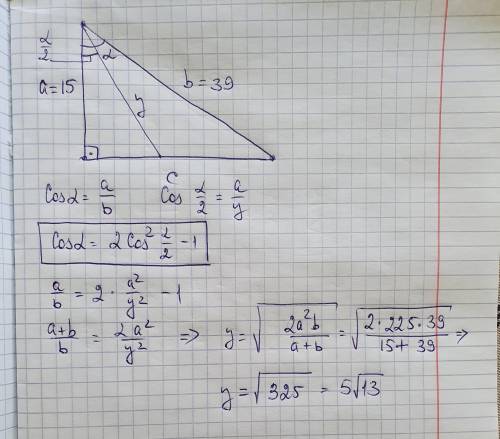 α/2
α
a=15
b=39
y
C
Cosα = a/b Cos α/2 = a/y
Cosα = 2Cos² α/2 - 1
a/b = 2 · a²/y² - 1
a+b/b = 2a²/y² => y = √(2a²b/a+b) = √(2·225·39/15+39) =>
y = √325 = 5√13